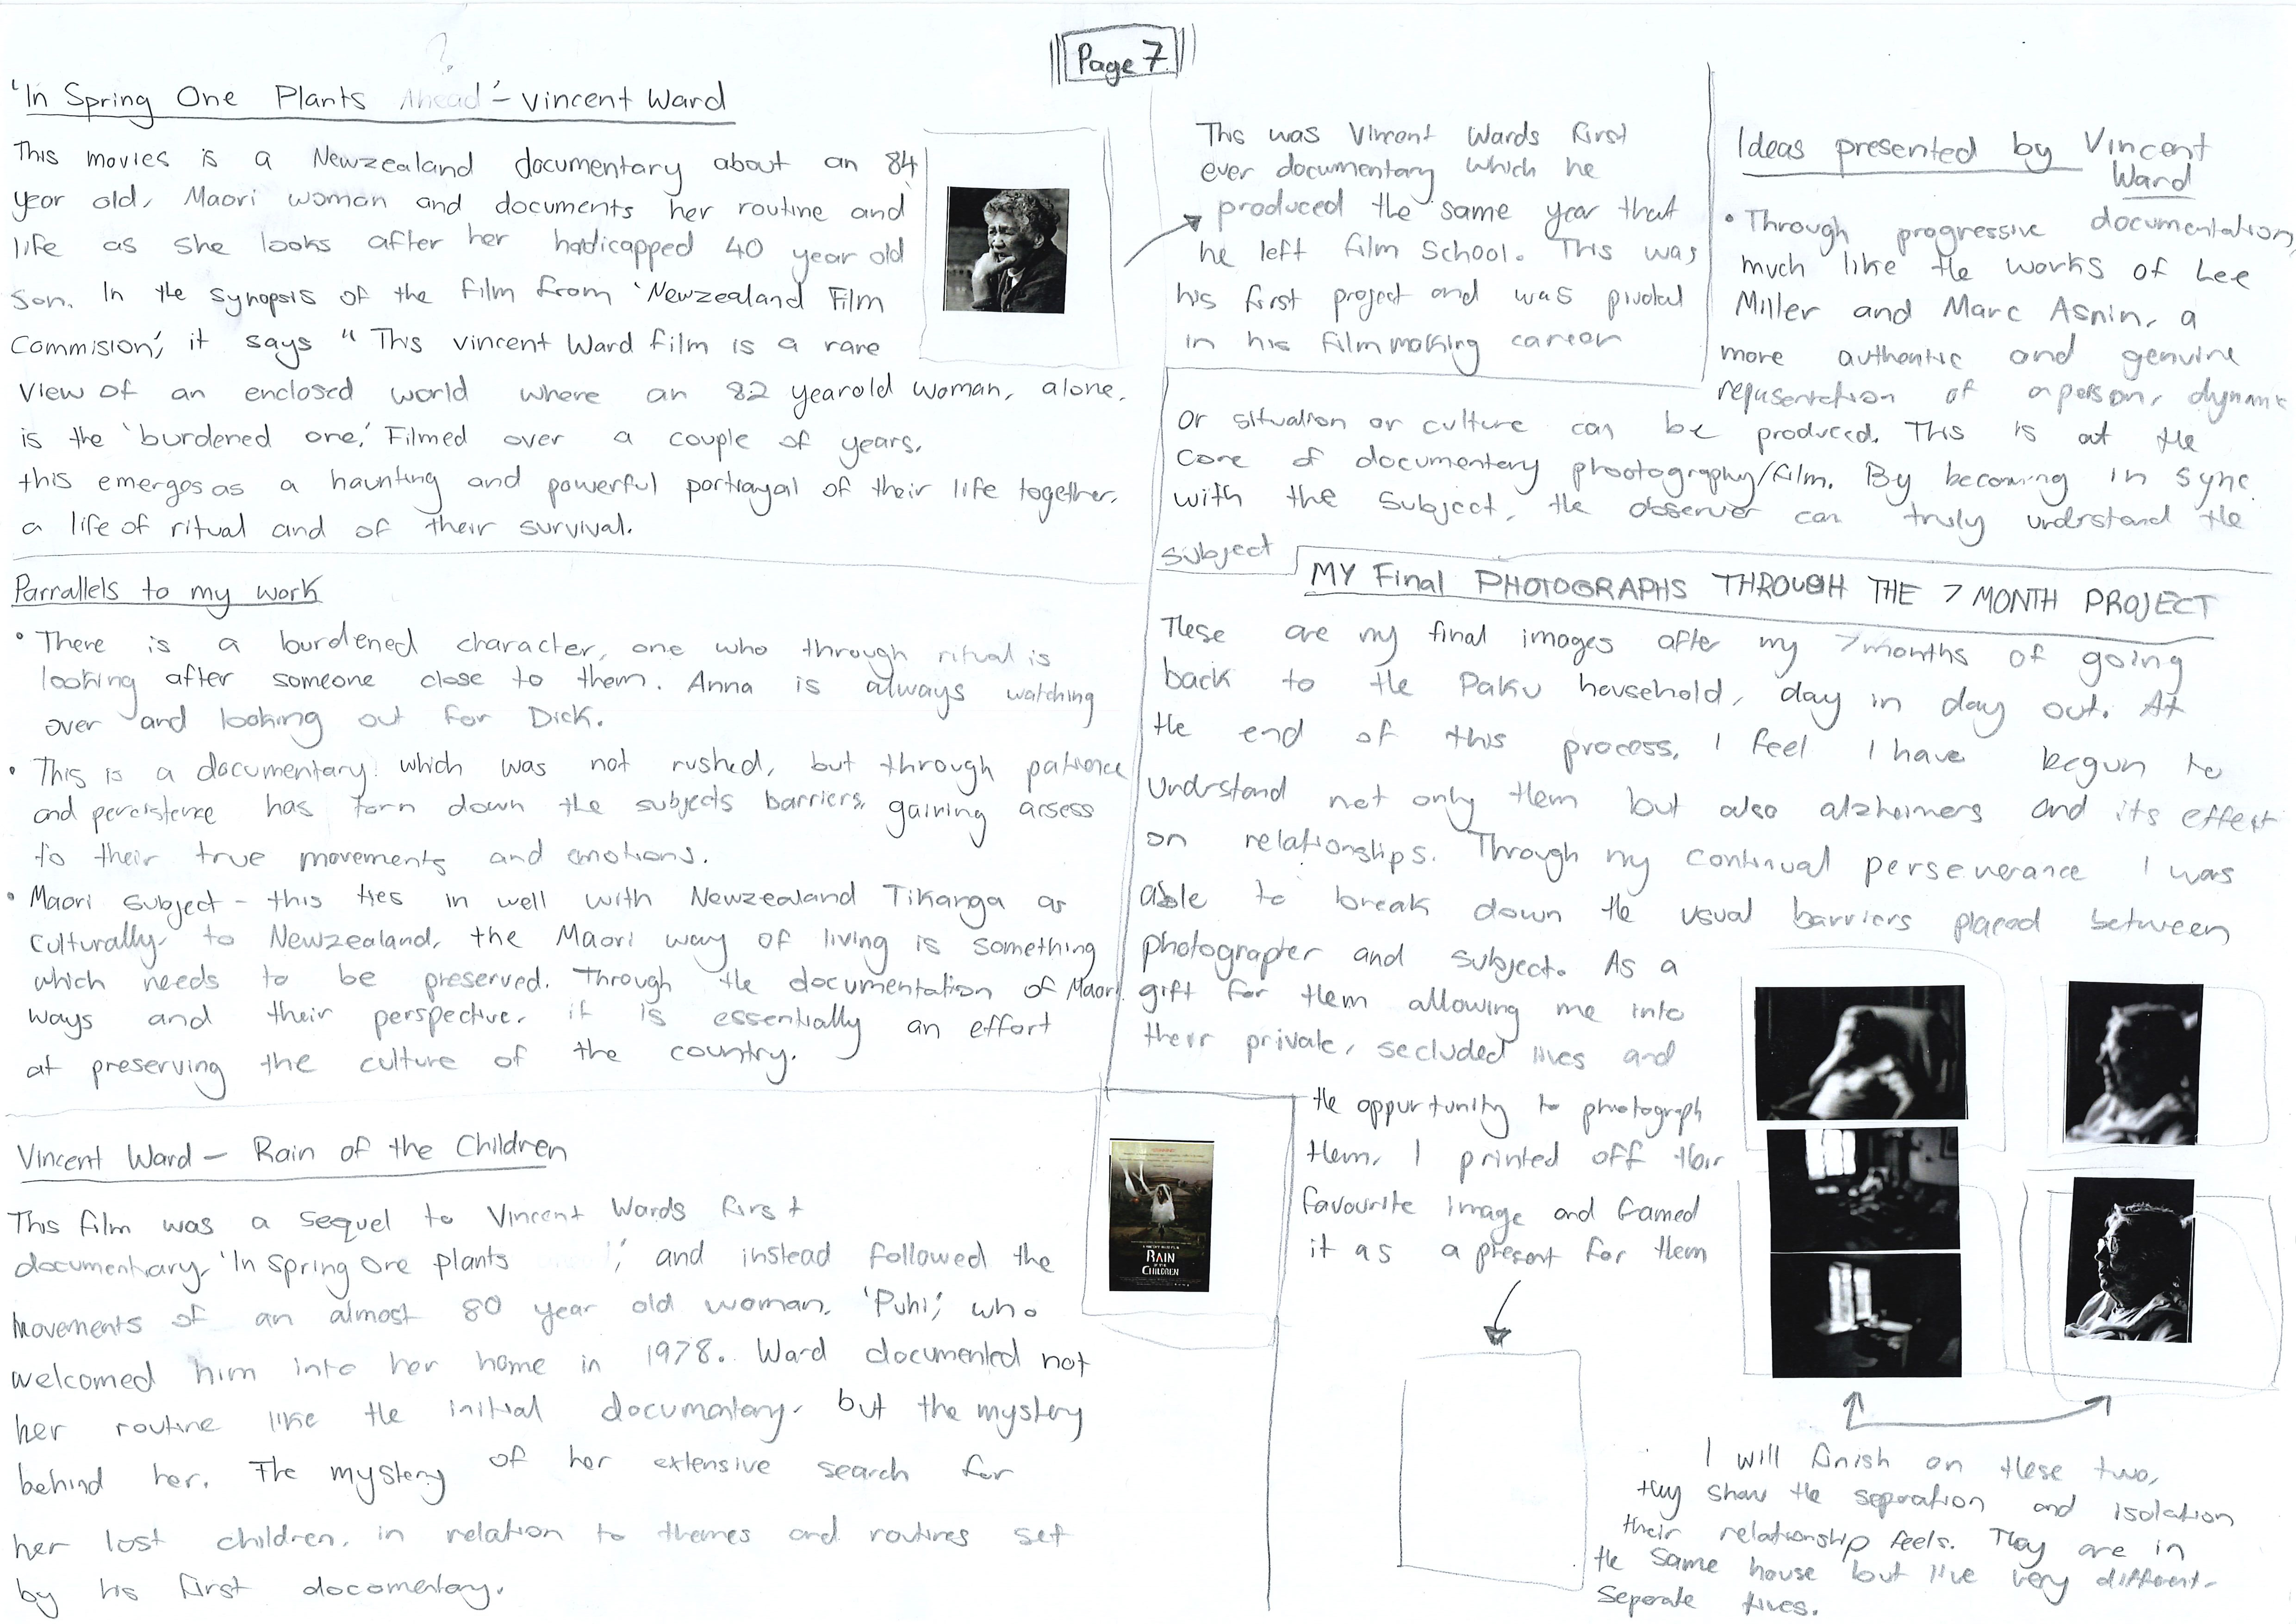 Page 7
?
'In Spring One Plants Ahead' - Vincent Ward
This movies is a Newzealand documentary about an 84
year old, Maori woman and documents her routine and
life as she looks after her hadicapped 40 year old
son. In the synopsis of the film from 'Newzealand Film
Commision', it says " This vincent Ward film is a rare
view of an enclosed world where an 82 yearold woman, alone,
is the 'burdened one.' Filmed over a couple of years,
this emerges as a haunting and powerful portrayal of their life together,
a life of ritual and of their survival.
This was Vincent Wards first
ever documentary which he
produced the same year that
he left film School. This was
his first project and was pivotal
in his filmmaking career
Ideas presented by Vincent
Ward
• Through progressive documentation,
much like the works of Lee
Miller and Marc Asnin, a
more authentic and genuine
repusentation of a person, dynamic
or situation or culture can be produced. This is at the
core of documentery phootography/film. By becoming in sync
with the subject, the observer can truly understand the
subject
Parrallels to my work
• There is a burdened character, one who through ritual is
looking after someone close to them. Anna is always watching
over and looking out for Dick.
• This is a documentary which was not rushed, but through patience
and persistence has torn down the subjects barriers, gaining acsess
to their true movements and emotions.
• Maori subject - this ties in well with Newzealand Tikanga as
culturally to Newzealand, the Maori way of living is something
which needs to be preserved. Through the documentation of Maori
ways and their perspective, it is essentially an effort
at preserving the culture of the country.
Vincent Ward - Rain of the Children
This film was a sequel to Vincent Wards first
documentary, 'In Spring One plants ', and instead followed the
movements of an almost 80 year old woman, 'Puhi', who
welcomed him into her home in 1978. Ward documented not
her routine like the initial documentary, but the mystery
behind her. The mystery of her extensive search for
her lost children, in relation to themes and routines set
by his first documentary.
RAIN
OF THE
CHILDREN
MY Final PHOTOGRAPHS THROUGH THE 7 MONTH PROJECT
These are my final images after my 7 months of going
back to the Paku household, day in day out. At
the end of this process, I feel I have begun to
understand not only them but also alzheimers and its effect
on relationships. Through my continual perseverance I was
able to break down the usual barriers placed between
photographer and subject. As a
gift for them allowing me into
their private, secluded lives and
the oppurtunity to photograph
them, I printed off their
favourite image and framed
it as a present for them
I will finish on these two,
they show the seperation and isolation
their relationship feels. They are in
the same house but live very different,
seperate lives.